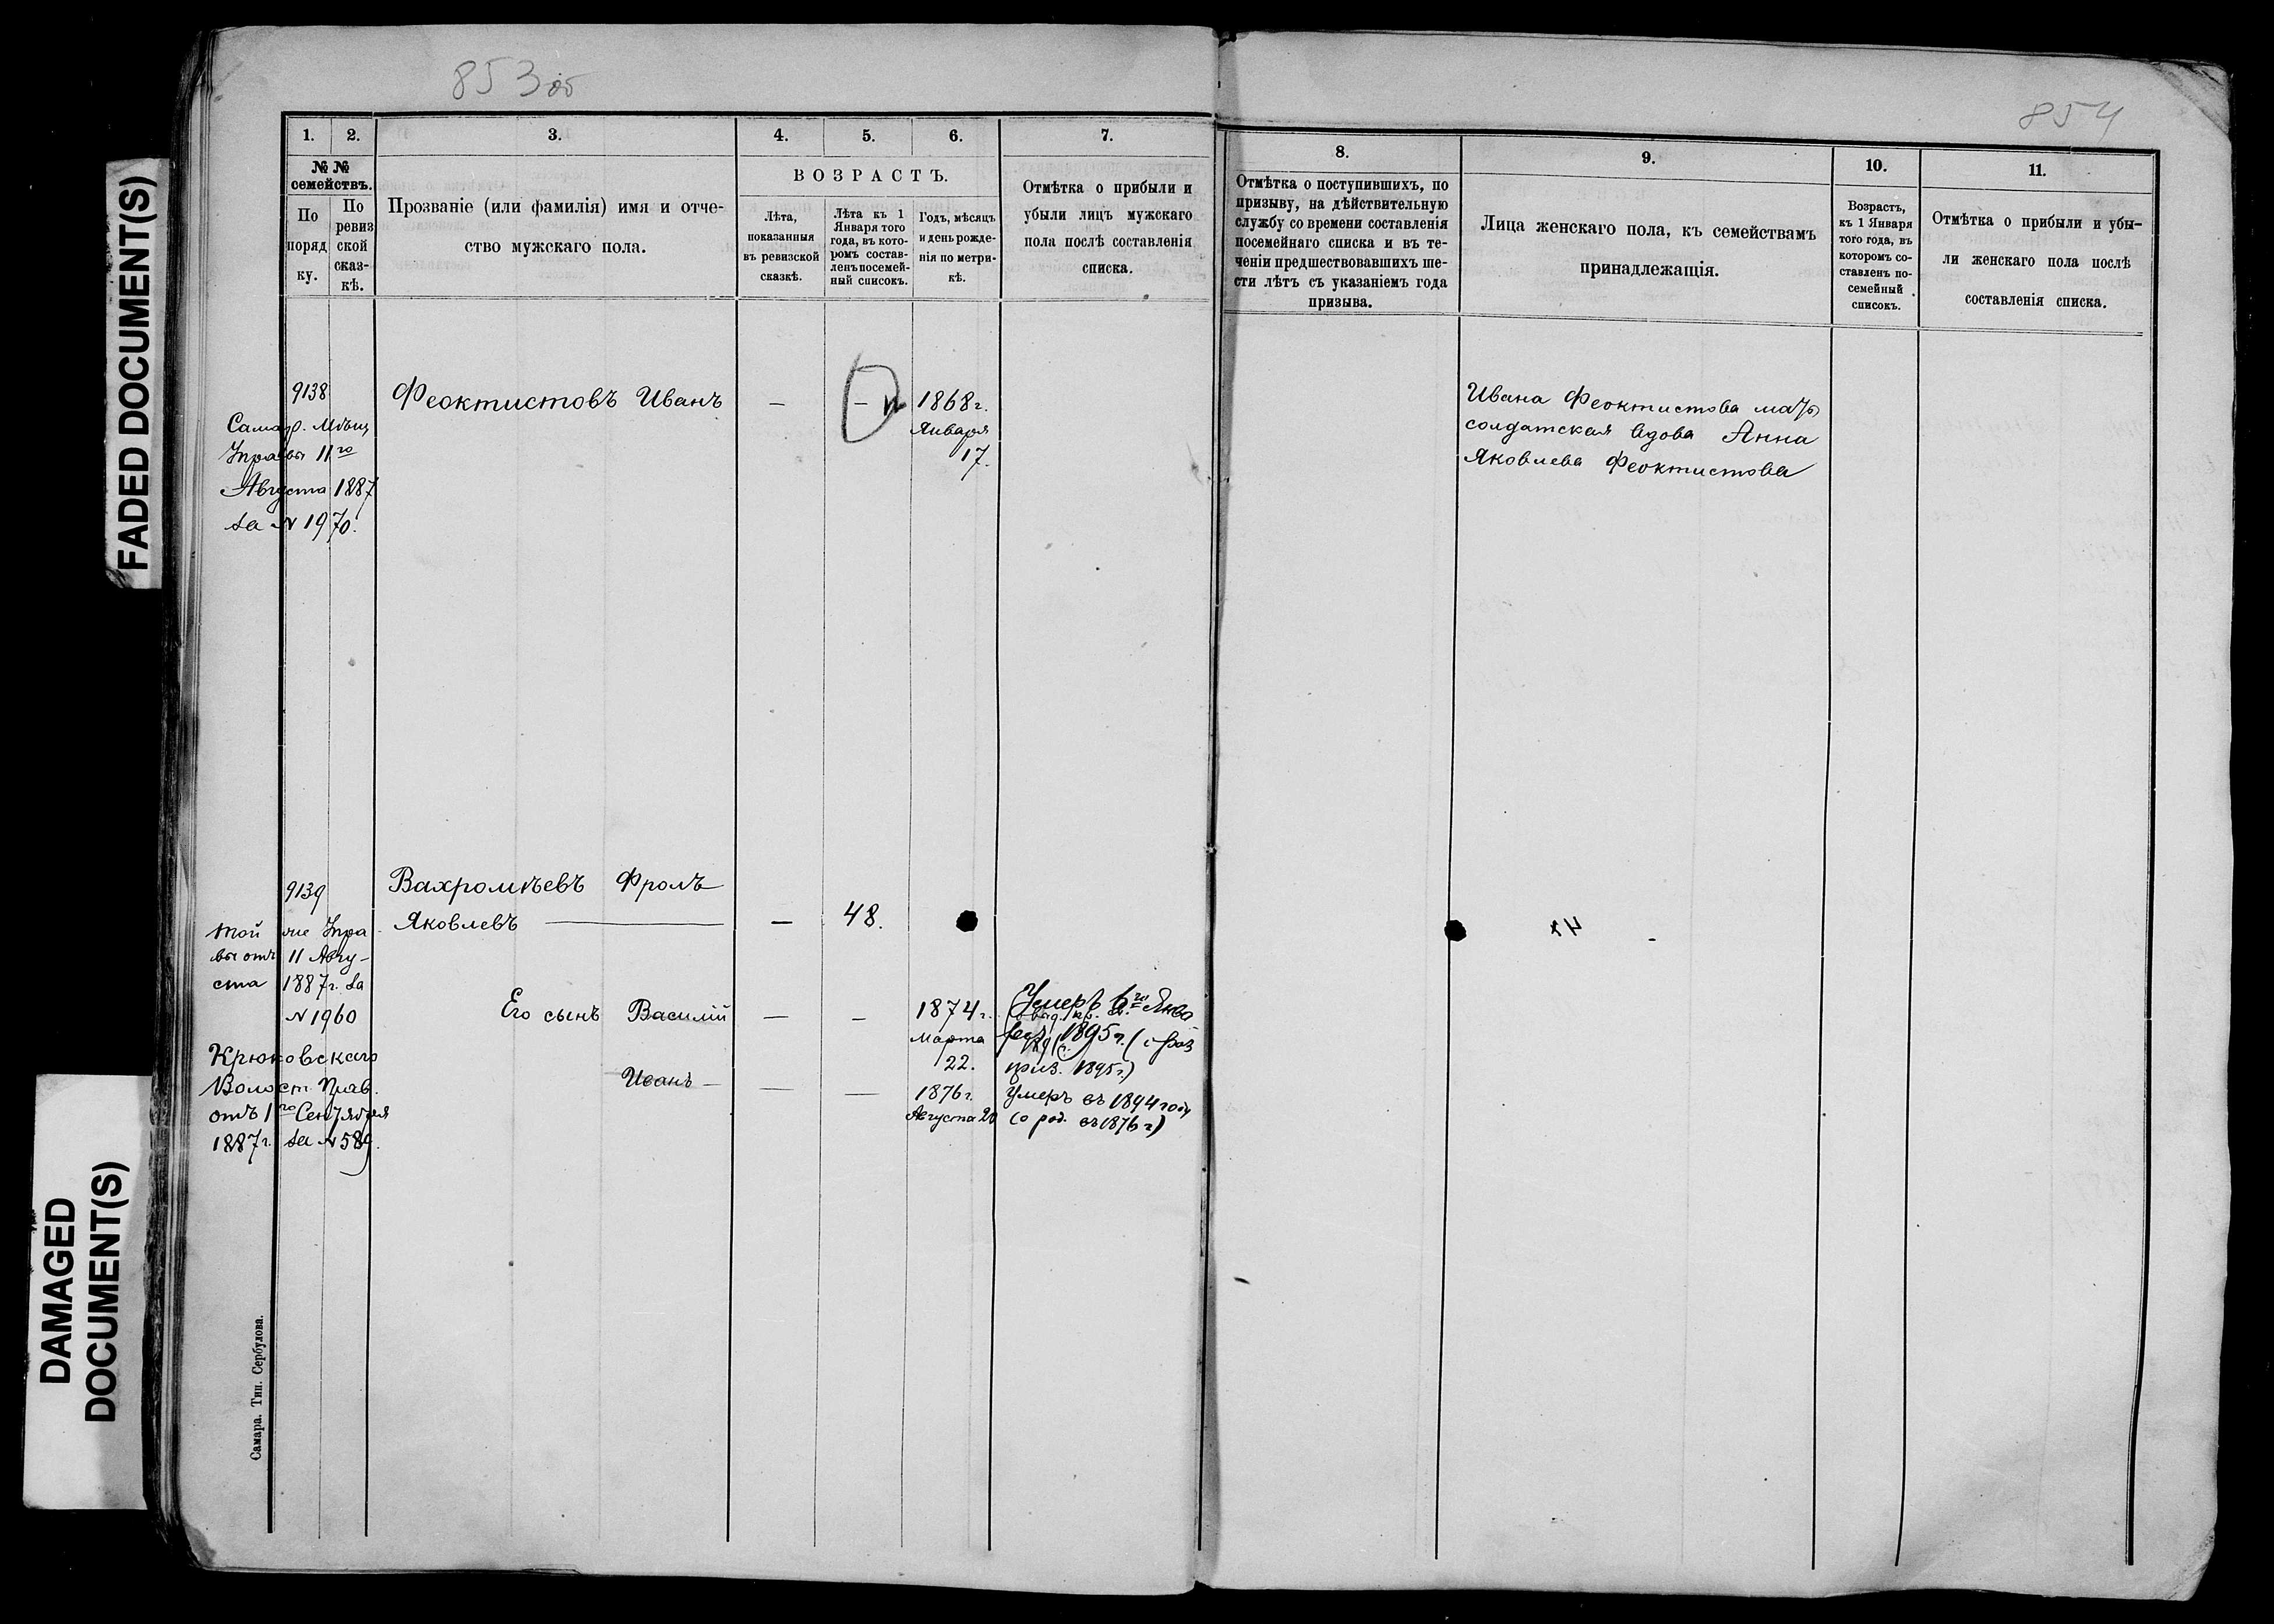 FADED DOCUMENT(S)
DAMAGED
DOCUMENT(S)
853 об
854
1.
2.
3.
4.
5.
6.
7.
№ №
семействъ.
По
поряд
ку.
По
ревиз
ской
сказ-
кѣ.
Прозваніе (или фамилія) имя и отче-
ство мужскаго пола.
ВОЗРАСТЪ.
Лѣта,
показанныя
въ ревизской
сказкѣ.
Лѣта къ 1
Января того
года, въ кото-
ромъ состав-
ленъ посемей-
ный списокъ.
Годъ, мѣсяцъ
и день рожде-
нія по метри-
кѣ.
Отмѣтка о прибыли и
убыли лицъ мужскаго
пола послѣ составленія
списка.
8.
9.
10.
11.
Отмѣтка о поступившихъ, по
призыву, на дѣйствительную
службу со времени составленія
посемейнаго списка и въ те-
ченіи предшествовавшихъ ше-
сти лѣтъ съ указаніемъ года
призыва.
Лица женскаго пола, къ семействамъ
принадлежащія.
Возрастъ,
къ 1 Января
того года, въ
которомъ со-
ставленъ по-
семейный
списокъ.
Отмѣтка о прибыли и убы-
ли женскаго пола послѣ
составленія списка.
9138
Самар. Мѣщ
Управы 11го
Августа 1887
за N 1970.
Феоктистовъ Иванъ
—
—
1868 г.
Января
17.
Ивана Феоктистова мать
солдатская вдова Анна
Яковлева Феоктистова
9139
той же Упра
вы отъ 11 Авгу-
ста 1887 г. за
N 1960
Крюковскаго
Волост. Прав.
отъ 1го Сентября
1887 г. за N 589.
Вахромѣевъ Фролъ
Яковлевъ
—
48.
Его сынъ Василій
—
—
1874 г.
Марта
22.
Умеръ 6го Янва
1895 г.
приз. 1895 г.)
Иванъ
—
—
1876 г.
Августа 20
Умеръ въ 1894 году
(о род. въ 1876 г)
Самара. Тип. Сербулова.